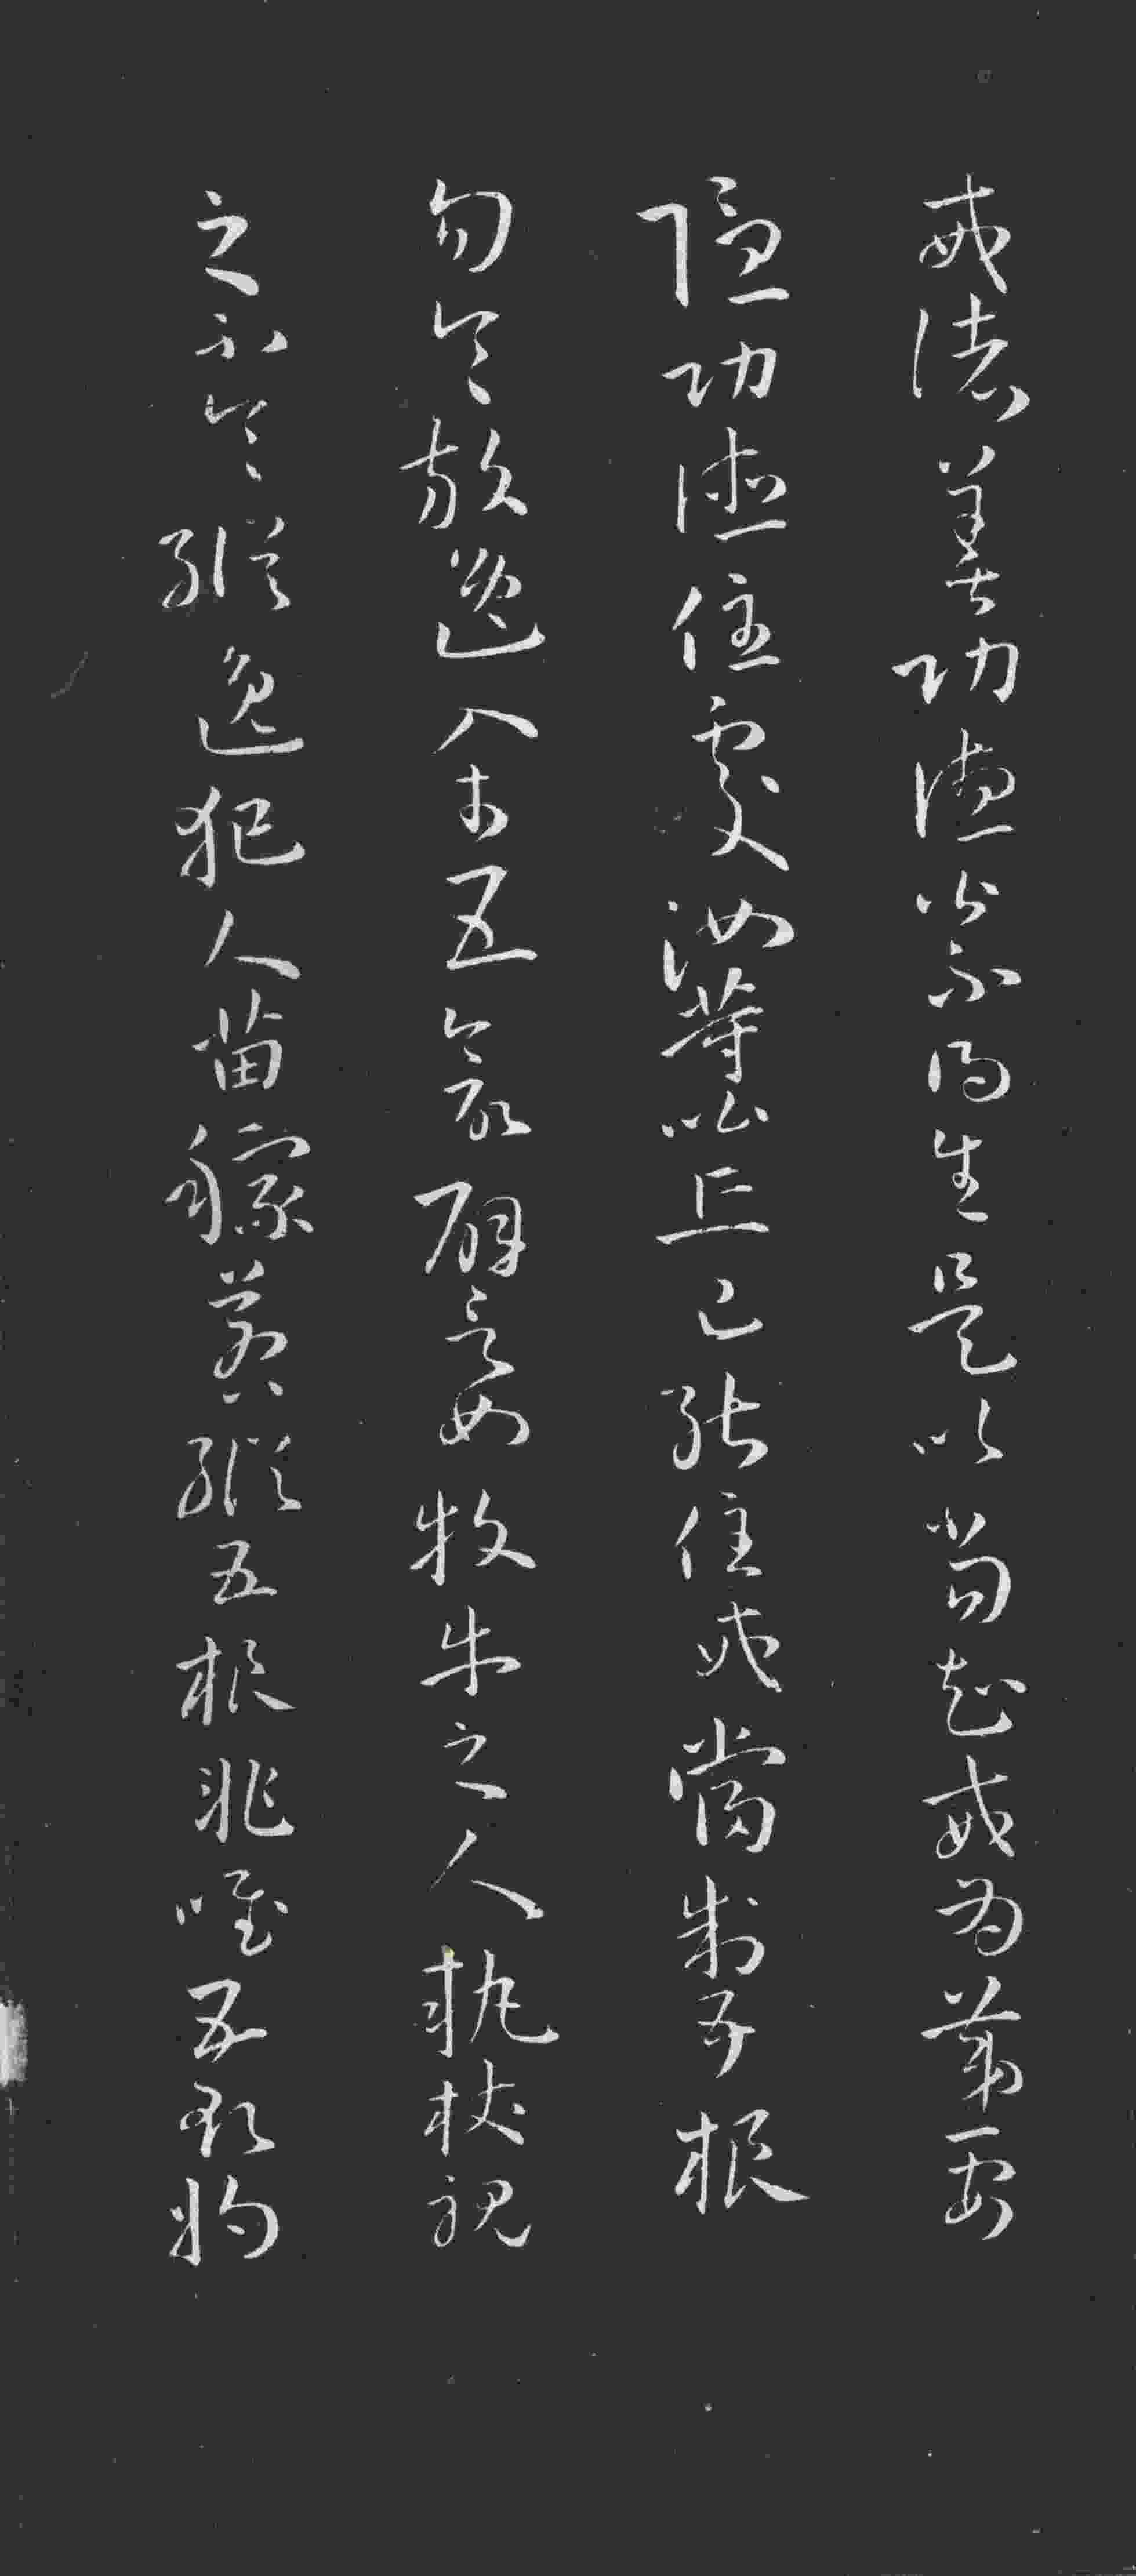 戒諸善功德皆不得生是以當知戒為第一安
隱功德住處汝等比丘已能住戒當制五根
勿令放逸入於五欲譬如牧牛之人執杖視
之不令縱逸犯人苗稼若縱五根非唯五欲將